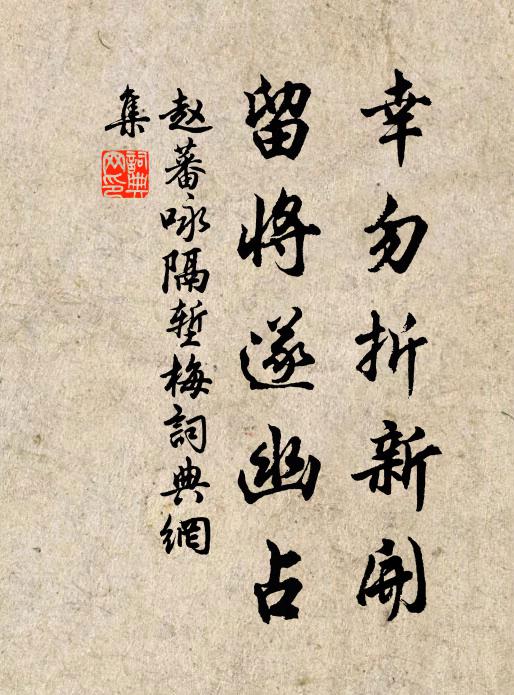 幸勿折新開
留將遂幽占
赵蕃咏隔塹梅詞典網
集
詞典
网印